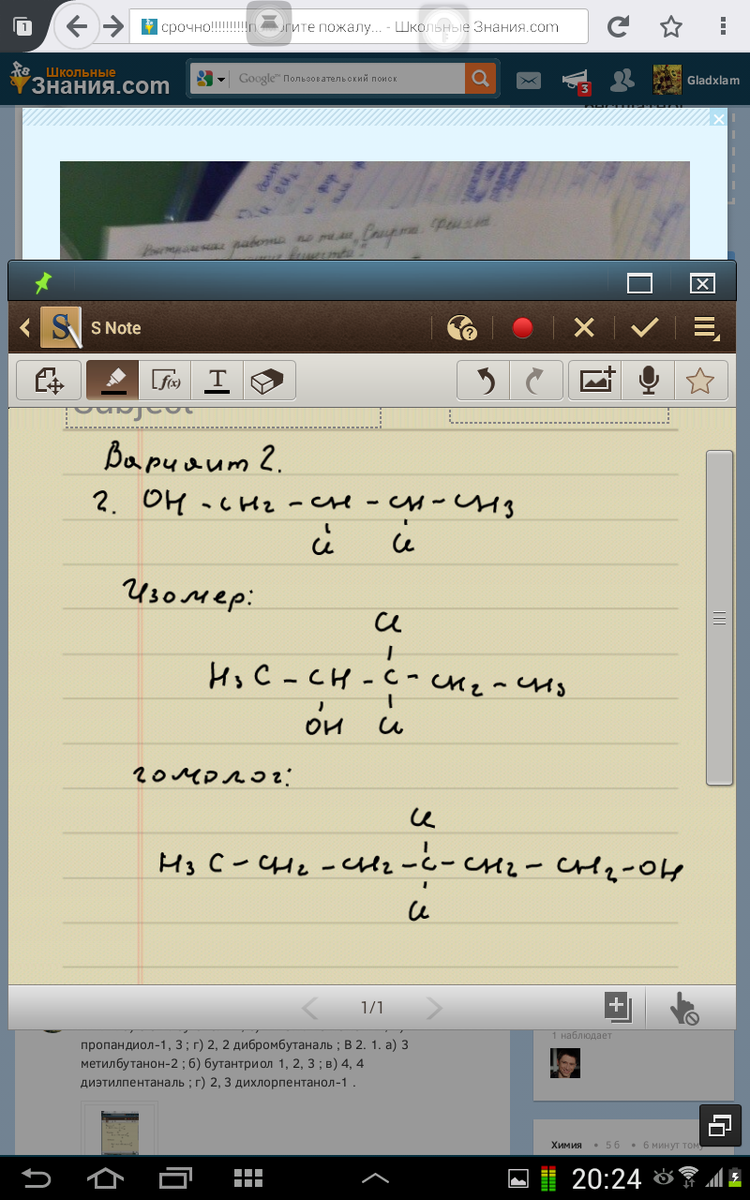 1
срочно!!!!!!!!!!п
огите пожалу... - Школьные Знания.com
Школьные
Знания.com
Google™ Пользовательский поиск
3
Gladxlam
Контрольная работа по теме „Спирты. Фенолы
S Note
f(x)
T
Subject
Вариант 2.
2. OH - CH2 - CH - CH - CH3
Cl Cl
Изомер:
Cl
H3C - CH - C - CH2 - CH3
OH Cl
гомолог:
Cl
H3C - CH2 - CH2 - C - CH2 - CH2 - OH
Cl
1/1
пропандиол-1, 3 ; г) 2, 2 дибромбутаналь ; В 2. 1. а) 3
метилбутанон-2 ; б) бутантриол 1, 2, 3 ; в) 4, 4
диэтилпентаналь ; г) 2, 3 дихлорпентанол-1 .
1 наблюдает
Химия • 5 б • 6 минут тому
20:24